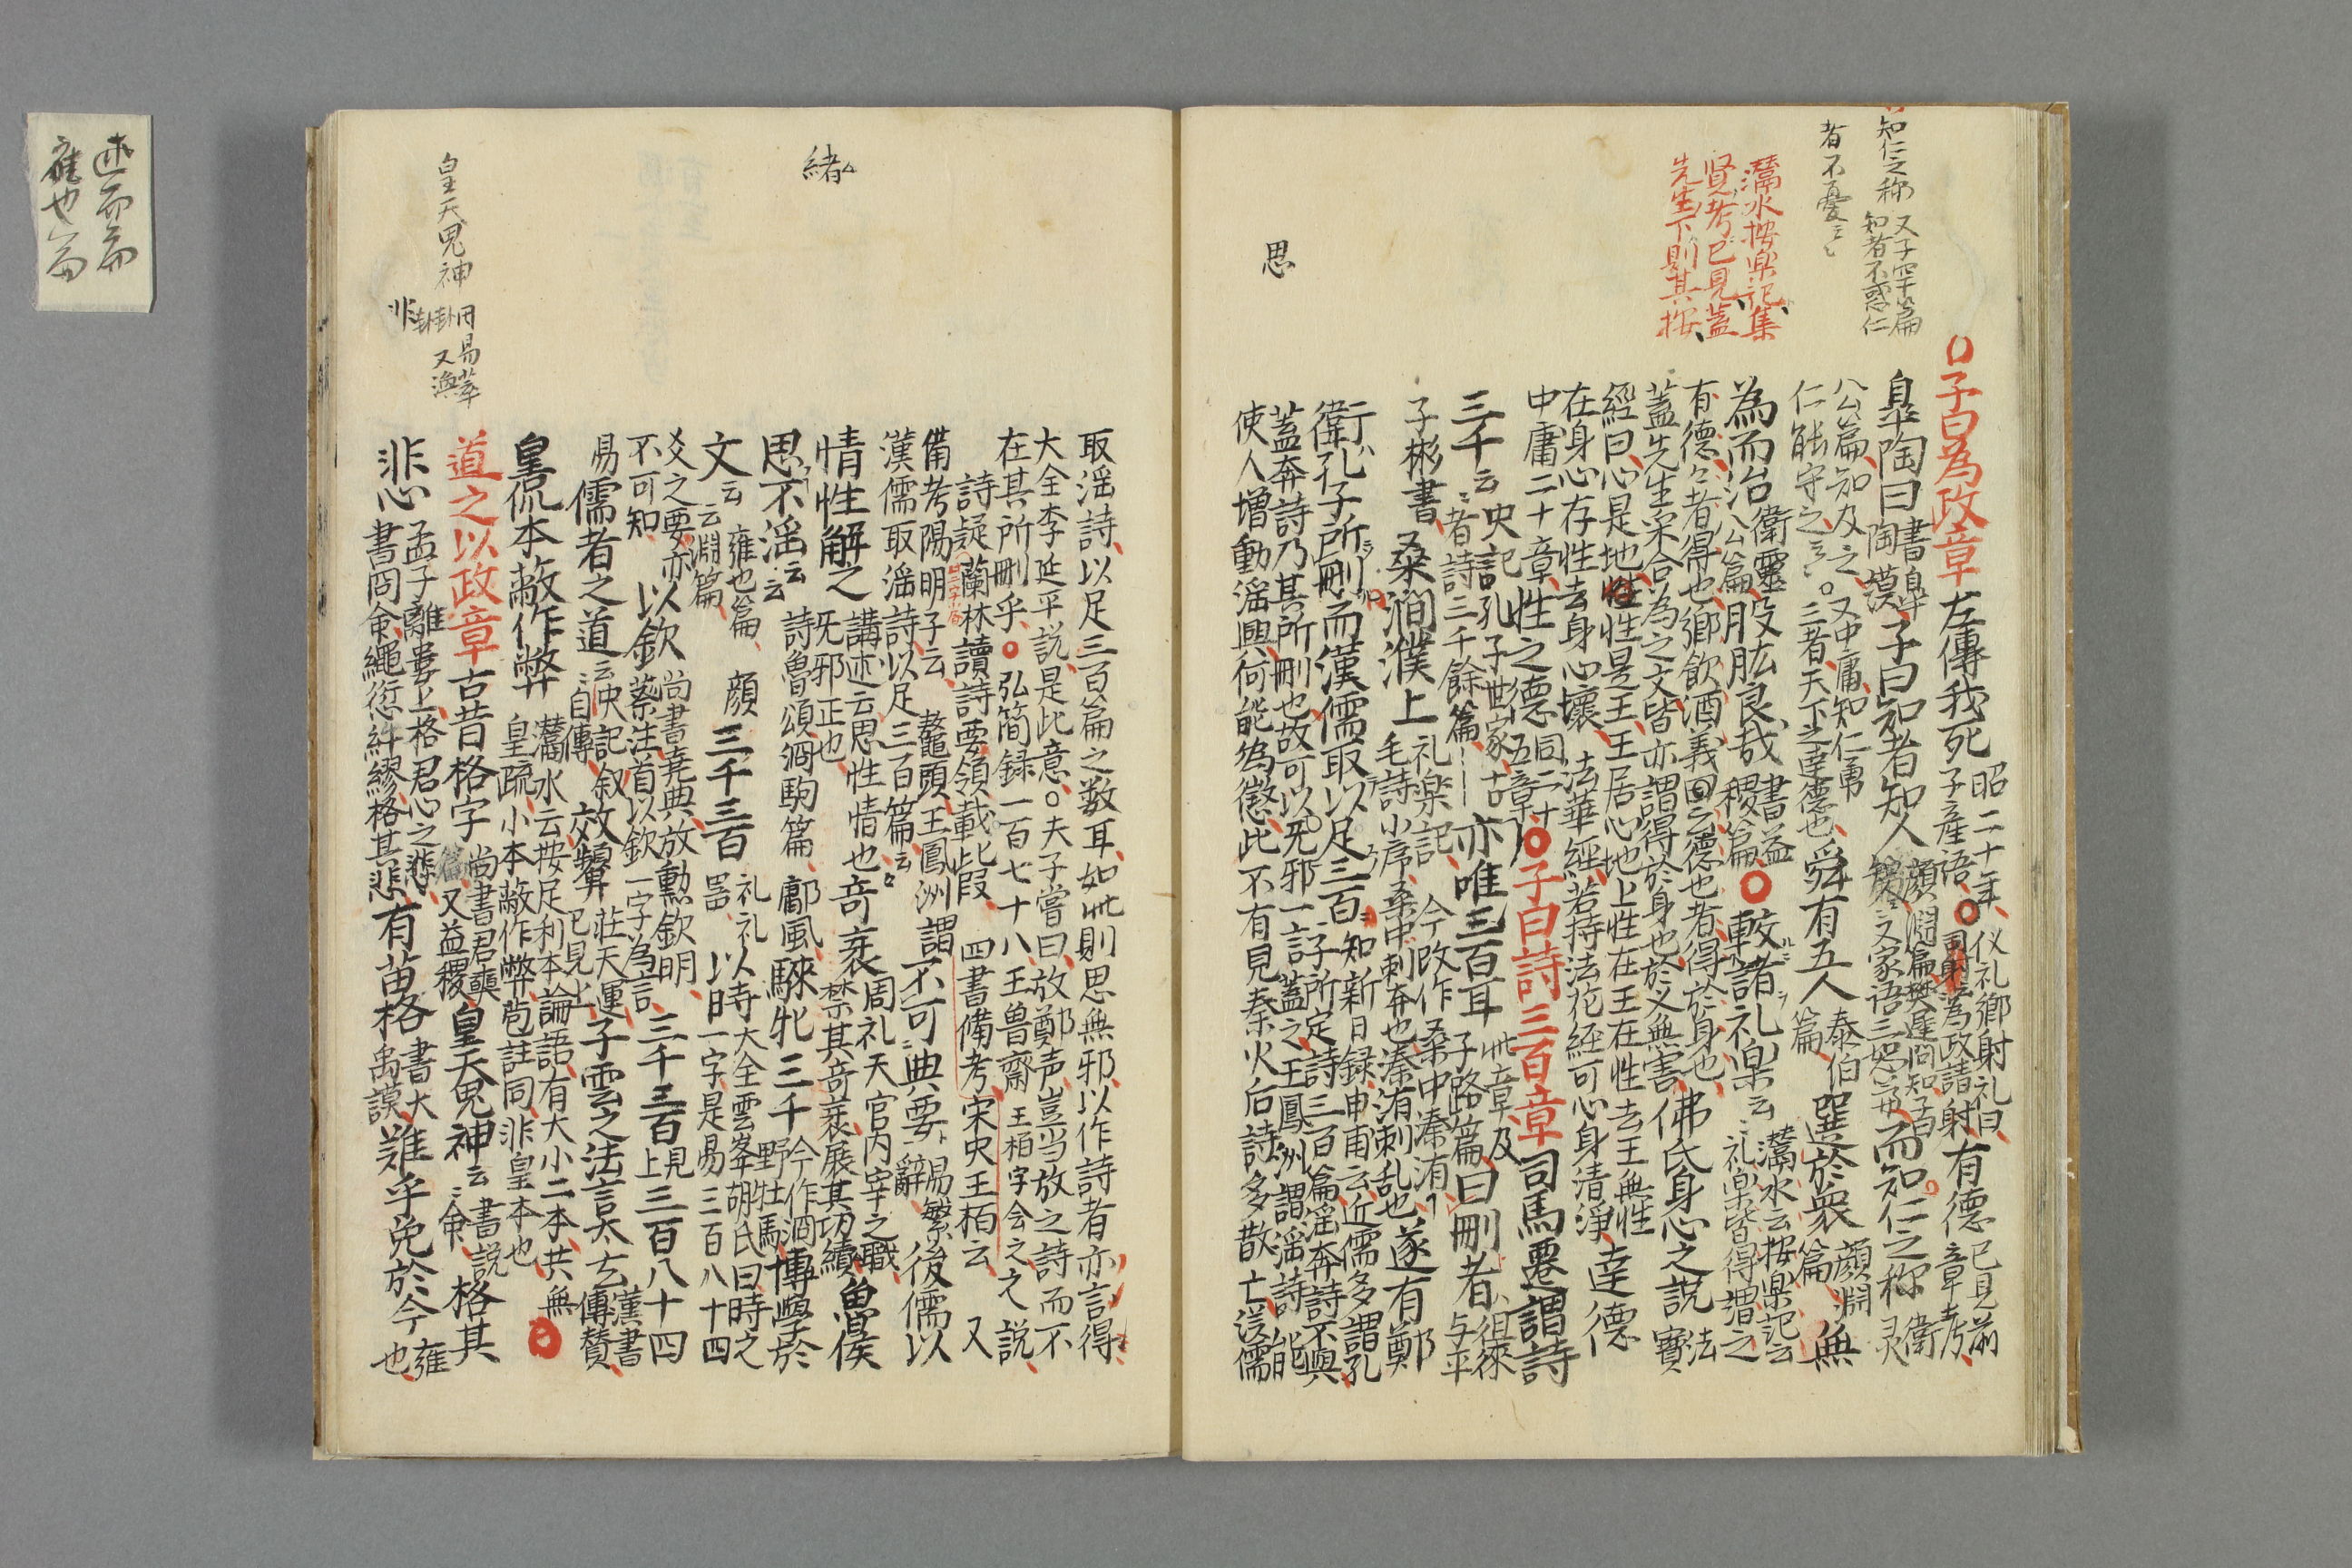 知仁之称 又子罕篇
知者不惑仁
者不憂云々
灊水按楽記集
贤考已見蓋
先生下則其按
思
子曰為政章 左傳我死 昭二十年
子産語 仪礼郷射礼曰
司射為政請射 有德 已見前
章考
皐陶曰 書皐
陶謨 子曰知者知人 顔淵篇樊遲問知子曰
又家語三恕篇 而知仁之称 衛灵
公篇知及之 又中庸知仁勇
仁能守之云々 三者天下之達德也 舜有五人 泰伯
篇 選於衆 顔淵
篇 無
為而治 衛靈
公篇 股肱良哉 書益
稷篇 較諸礼楽云 灊水云按楽記云
礼楽皆得謂之
有德々者得也郷飲酒義曰德也者得於身也
蓋先生采合為之文皆亦謂得於身也於义無害 佛氏身心之説 法
寶
經曰心是地性是王王居心地上性在王在性去王無性
在身心存性去身心壞 法華經若持法花経可心身清淨 達德
中庸二十章 性之德 同二十
五章 子曰詩三百章 司馬遷謂詩
三千云 史記孔子世家古
者詩三千餘篇 亦唯三百耳 此章及
子路篇 曰刪者 徂徠
与平
子彬書 桑澗濮上 礼楽記 今改作桑中溱洧
毛詩小序桑中刺奔也溱洧刺乱也 遂有鄭
衛孔子所刪而漢儒取以足三百 知新日録申甫云近儒多謂孔
子所定詩三百篇淫奔詩不與
蓋奔詩乃其所刪也故可以旡邪一言蓋之王鳳洲謂淫詩能
使人增動淫興何能為懲此不有見秦火后詩多散亡漢儒
緒
皇天鬼神
同易萃
卦
又渙
卦
非
取淫詩以足三百篇之数耳如此則思無邪以作詩者亦言得
大全李延平説是此意○夫子嘗曰放鄭声豈当放之詩而不
在其所刪乎 弘簡録一百七十八王魯齋 王柏字会之 之説 又
詩疑蘭林讀詩要領載此段 四書備考宋史王栢云
備考陽明子云 鼇頭王鳳洲謂 不可典要 易繫
辭 後儒以
漢儒取淫詩以足三百篇云々
情性解之 講述云思性情也
旡邪正也 奇衺 周礼天官内宰之職
禁其奇衺展其功績 魯侯
思不淫云云 詩魯頌駉駒篇 鄘風騋牝三千 今作駉
野牡馬 博學於
文云云 雍也篇 顔
淵篇 三千三百 礼礼
器 以時 大全雲峯胡氏曰時之
一字是易三百八十四
爻之要亦 以欽 尚書堯典放勳欽明
不可知 蔡注首以欽一字為言 三千三百 見
上 三百八十四
易 儒者之道云 史記叙
自傳 效顰 荘天運
已見上 子雲之法言太玄 漢書
傳賛
皇侃本蔽作弊 灊水云按足利本論語有大小二本共無
皇疏小本蔽作弊苞註同非皇本也
道之以政章 古昔格字 尚書君奭
篇又益稷 皇天鬼神云 書説
命 格其
非心 孟子離婁上格君心之非
書冏命繩愆糾繆格其非 有苗格 書大
禹謨 難乎免於今 雍
也
述而篇
雍也篇